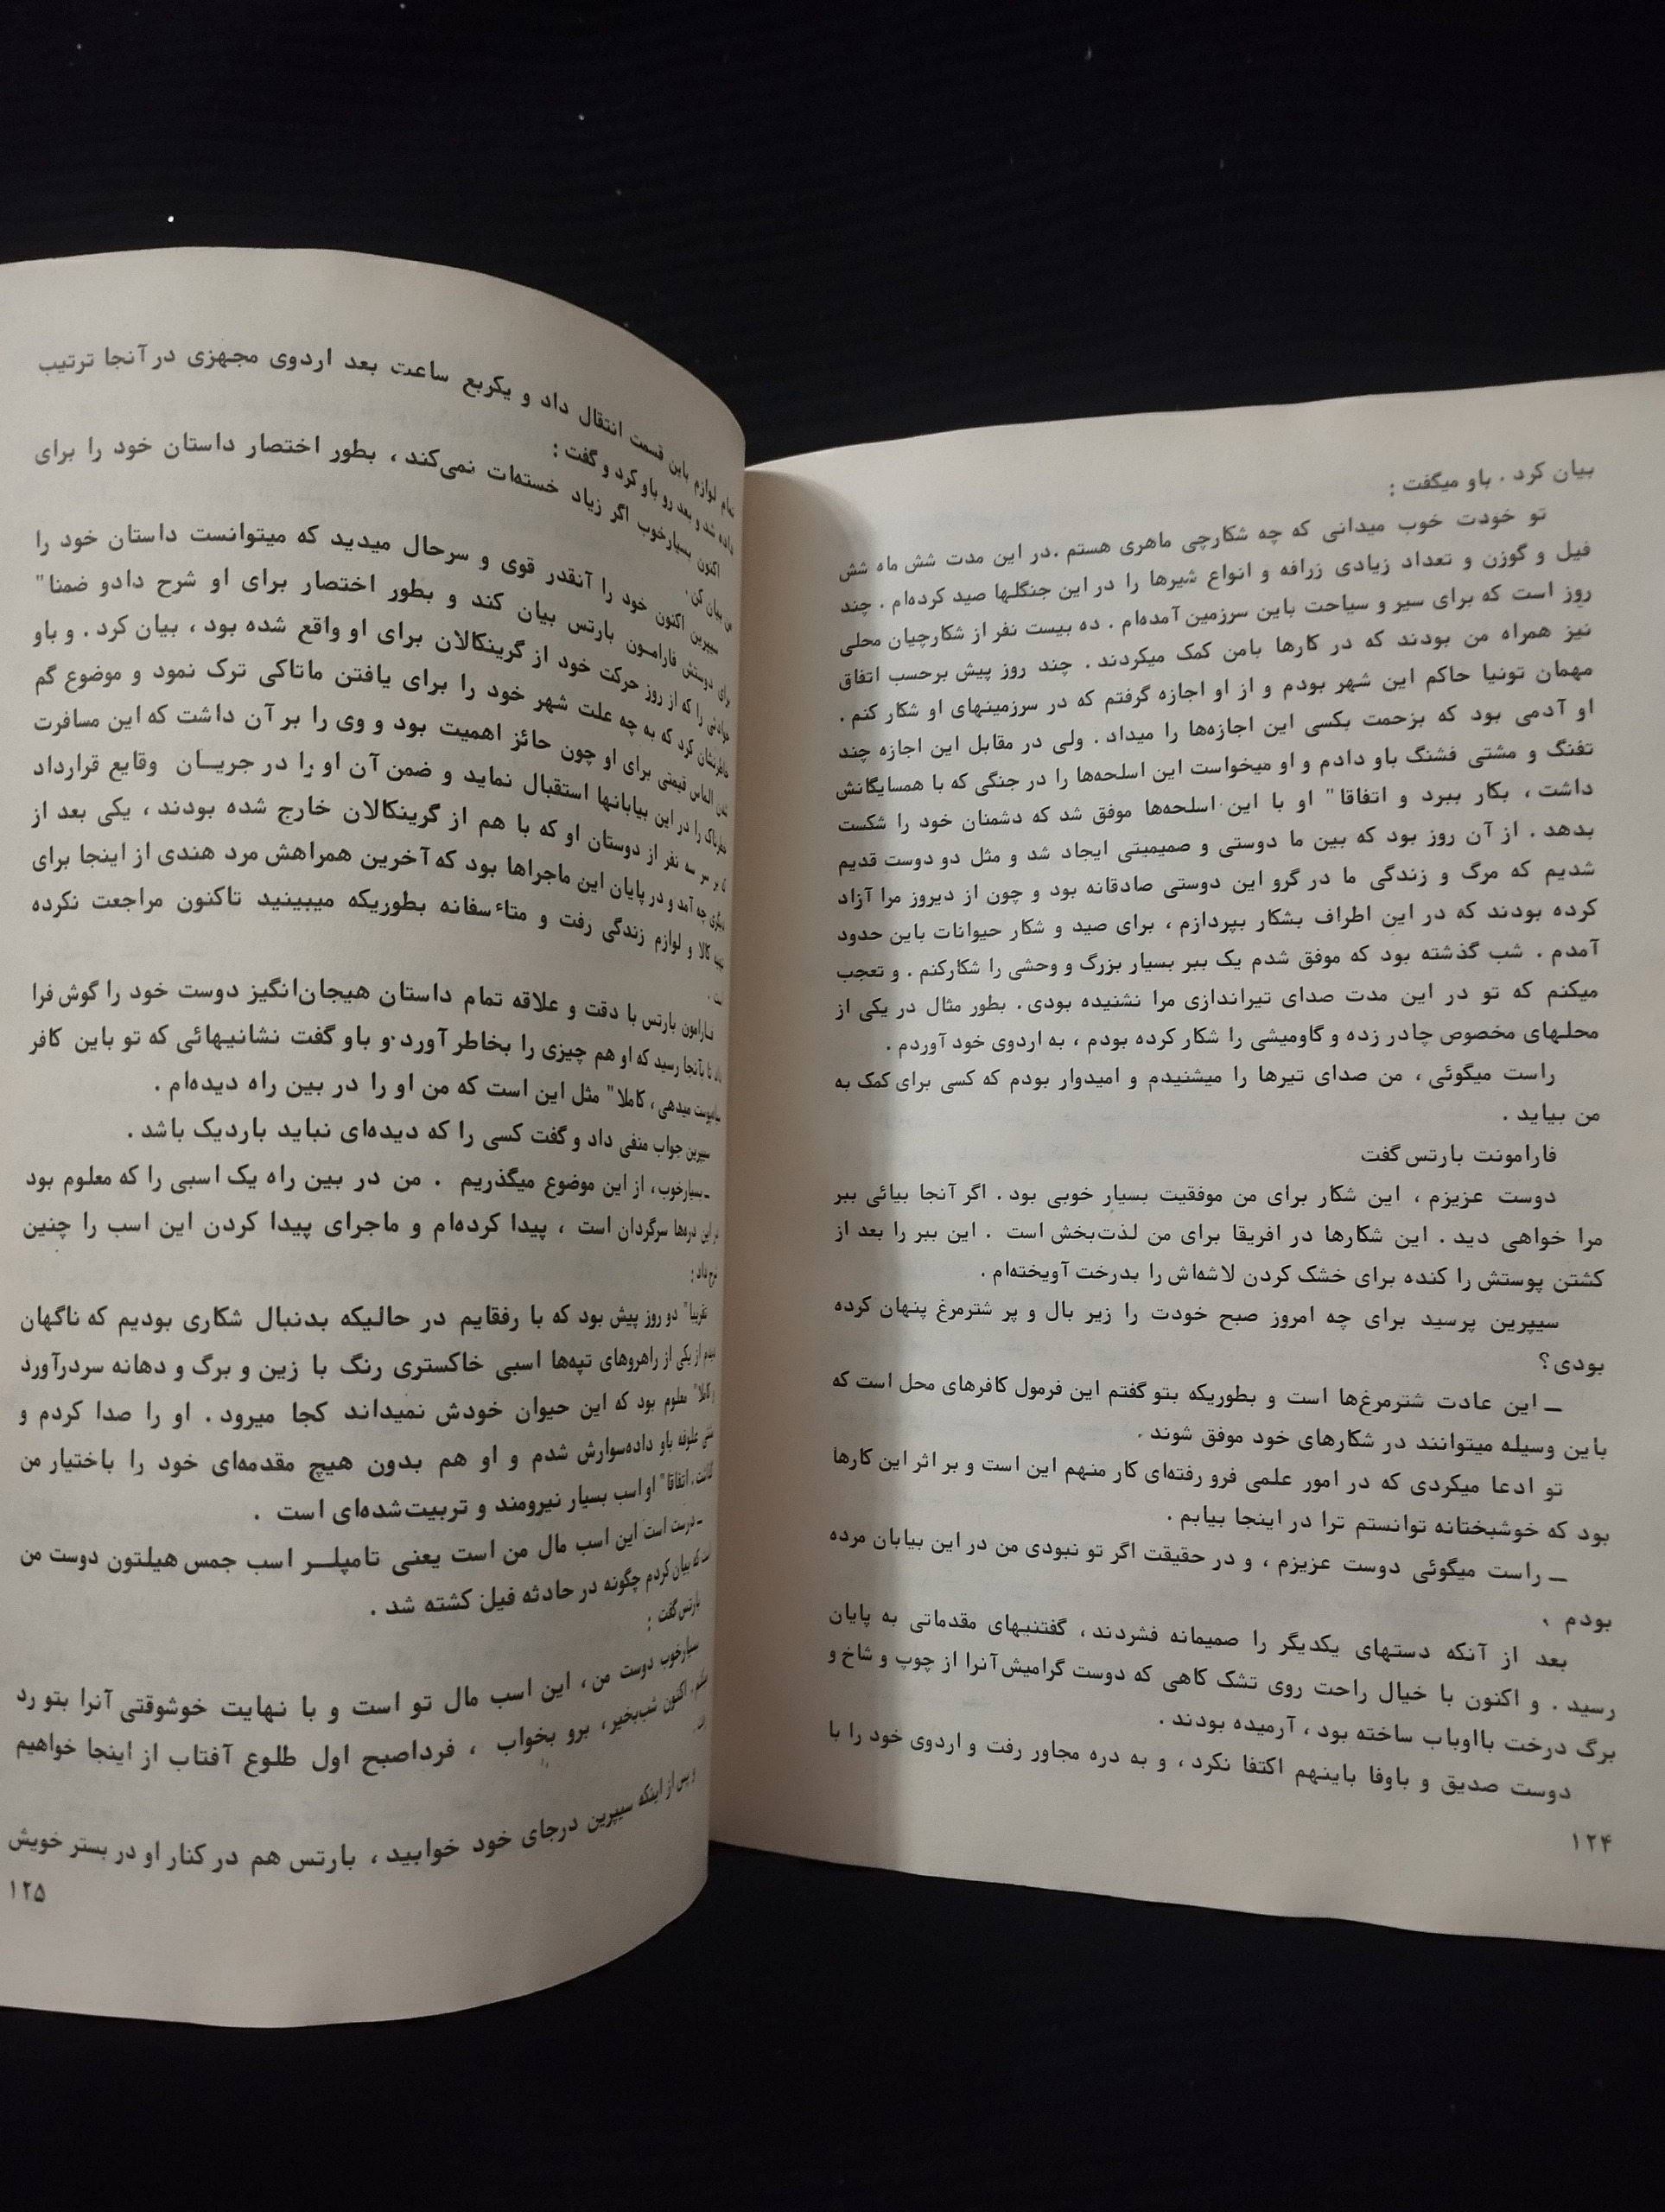 بیان کرد . باو میگفت :
تو خودت خوب میدانی که چه شکارچی ماهری هستم . در این مدت شش ماه شش
فیل و گوزن و تعداد زیادی زرافه و انواع شیرها را در این جنگلها صید کرده‌ام . چند
روز است که برای سیر و سیاحت باین سرزمین آمده‌ام . ده بیست نفر از شکارچیان محلی
نیز همراه من بودند که در کارها بامن کمک میکردند . چند روز پیش برحسب اتفاق
مهمان تونیا حاکم این شهر بودم و از او اجازه گرفتم که در سرزمینهای او شکار کنم .
او آدمی بود که بزحمت بکسی این اجازه‌ها را میداد . ولی در مقابل این اجازه چند
تفنگ و مشتی فشنگ باو دادم و او میخواست این اسلحه‌ها را در جنگی که با همسایگانش
داشت ، بکار ببرد و اتفاقا" او با این اسلحه‌ها موفق شد که دشمنان خود را شکست
بدهد . از آن روز بود که بین ما دوستی و صمیمیتی ایجاد شد و مثل دو دوست قدیم
شدیم که مرگ و زندگی ما در گرو این دوستی صادقانه بود و چون از دیروز مرا آزاد
کرده بودند که در این اطراف بشکار بپردازم ، برای صید و شکار حیوانات باین حدود
آمدم . شب گذشته بود که موفق شدم یک ببر بسیار بزرگ و وحشی را شکارکنم . و تعجب
میکنم که تو در این مدت صدای تیراندازی مرا نشنیده بودی . بطور مثال در یکی از
محلهای مخصوص چادر زده و گاومیشی را شکار کرده بودم ، به اردوی خود آوردم .
راست میگوئی ، من صدای تیرها را میشنیدم و امیدوار بودم که کسی برای کمک به
من بیاید .
فارامونت بارتس گفت
دوست عزیزم ، این شکار برای من موفقیت بسیار خوبی بود . اگر آنجا بیائی ببر
مرا خواهی دید . این شکارها در افریقا برای من لذت‌بخش است . این ببر را بعد از
کشتن پوستش را کنده برای خشک کردن لاشه‌اش را بدرخت آویخته‌ام .
سیپرین پرسید برای چه امروز صبح خودت را زیر بال و پر شترمرغ پنهان کرده
بودی ؟
— این عادت شترمرغ‌ها است و بطوریکه بتو گفتم این فرمول کافرهای محل است که
باین وسیله میتوانند در شکارهای خود موفق شوند .
تو ادعا میکردی که در امور علمی فرو رفته‌ای کار منهم این است و بر اثر این کارها
بود که خوشبختانه توانستم ترا در اینجا بیابم .
— راست میگوئی دوست عزیزم ، و در حقیقت اگر تو نبودی من در این بیابان مرده
بودم .
بعد از آنکه دستهای یکدیگر را صمیمانه فشردند ، گفتنیهای مقدماتی به پایان
رسید . و اکنون با خیال راحت روی تشک کاهی که دوست گرامیش آنرا از چوپ و شاخ و
برگ درخت بااوباب ساخته بود ، آرمیده بودند .
دوست صدیق و باوفا باینهم اکتفا نکرد ، و به دره مجاور رفت و اردوی خود را با
۱۲۴
تمام لوازم باین قسمت انتقال داد و یکربع ساعت بعد اردوی مجهزی در آنجا ترتیب
داده شد و بعد رو باو کرد و گفت :
اکنون بسیارخوب اگر زیاد خسته‌ات نمی‌کند ، بطور اختصار داستان خود را برای
بیان کن .
سیپرین اکنون خود را آنقدر قوی و سرحال میدید که میتوانست داستان خود را
برای دوستش فارامون بارتس بیان کند و بطور اختصار برای او شرح دادو ضمنا"
را که از روز حرکت خود از گرینکالان برای او واقع شده بود ، بیان کرد . و باو
خاطرنشان کرد که به چه علت شهر خود را برای یافتن ماتاکی ترک نمود و موضوع گم
شدن الماس قیمتی برای او چون حائز اهمیت بود و وی را بر آن داشت که این مسافرت
خطرناک را در این بیابانها استقبال نماید و ضمن آن او را در جریان وقایع قرارداد
که بر سر سه نفر از دوستان او که با هم از گرینکالان خارج شده بودند ، یکی بعد از
دیگری چه آمد و در پایان این ماجراها بود که آخرین همراهش مرد هندی از اینجا برای
تهیه کالا و لوازم زندگی رفت و متأسفانه بطوریکه میبینید تاکنون مراجعت نکرده
است .
فارامون بارتس با دقت و علاقه تمام داستان هیجان‌انگیز دوست خود را گوش فرا
تا بآنجا رسید که او هم چیزی را بخاطر آورد و باو گفت نشانیهائی که تو باین کافر
سیاهپوست میدهی ، کاملا" مثل این است که من او را در بین راه دیده‌ام .
سیپرین جواب منفی داد و گفت کسی را که دیده‌ای نباید باردیک باشد .
— بسیارخوب ، از این موضوع میگذریم . من در بین راه یک اسبی را که معلوم بود
در این دره‌ها سرگردان است ، پیدا کرده‌ام و ماجرای پیدا کردن این اسب را چنین
شرح داد :
تقریبا" دو روز پیش بود که با رفقایم در حالیکه بدنبال شکاری بودیم که ناگهان
دیدم از یکی از راهروهای تپه‌ها اسبی خاکستری رنگ با زین و برگ و دهانه سردرآورد
و کاملا" معلوم بود که این حیوان خودش نمیداند کجا میرود . او را صدا کردم و
مشتی علوفه باو داده‌سوارش شدم و او هم بدون هیچ مقدمه‌ای خود را باختیار من
گذاشت . اتفاقا" او اسب بسیار نیرومند و تربیت‌شده‌ای است .
— درست است این اسب مال من است یعنی تامپلر اسب جمس هیلتون دوست من
است که بیان کردم چگونه در حادثه فیل کشته شد .
بارتس گفت :
بسیارخوب دوست من ، این اسب مال تو است و با نهایت خوشوقتی آنرا بتو رد
میکنم . اکنون شب‌بخیر ، برو بخواب ، فرداصبح اول طلوع آفتاب از اینجا خواهیم
رفت .
و پس از اینکه سیپرین درجای خود خوابید ، بارتس هم در کنار او در بستر خویش
۱۲۵